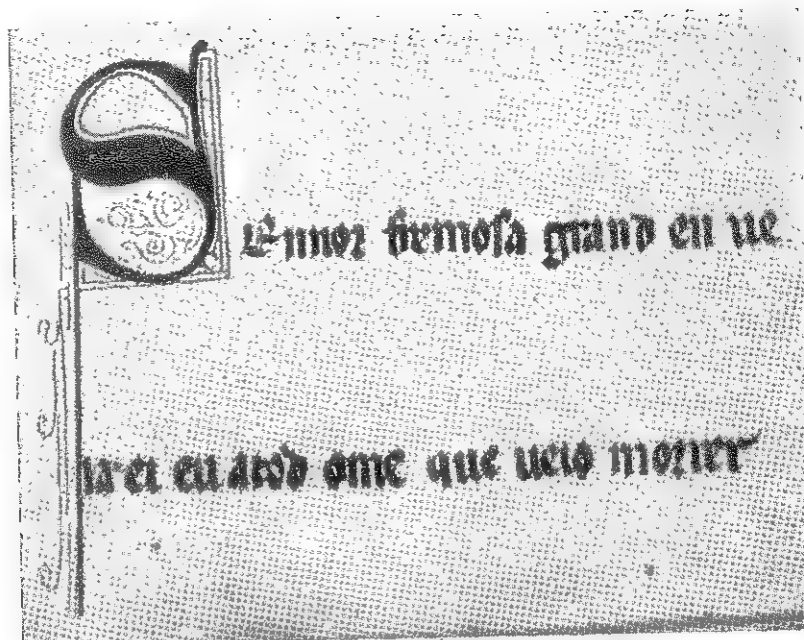 SEnnor fremosa grand en ue
ia ei eu atod ome que ueio morrer